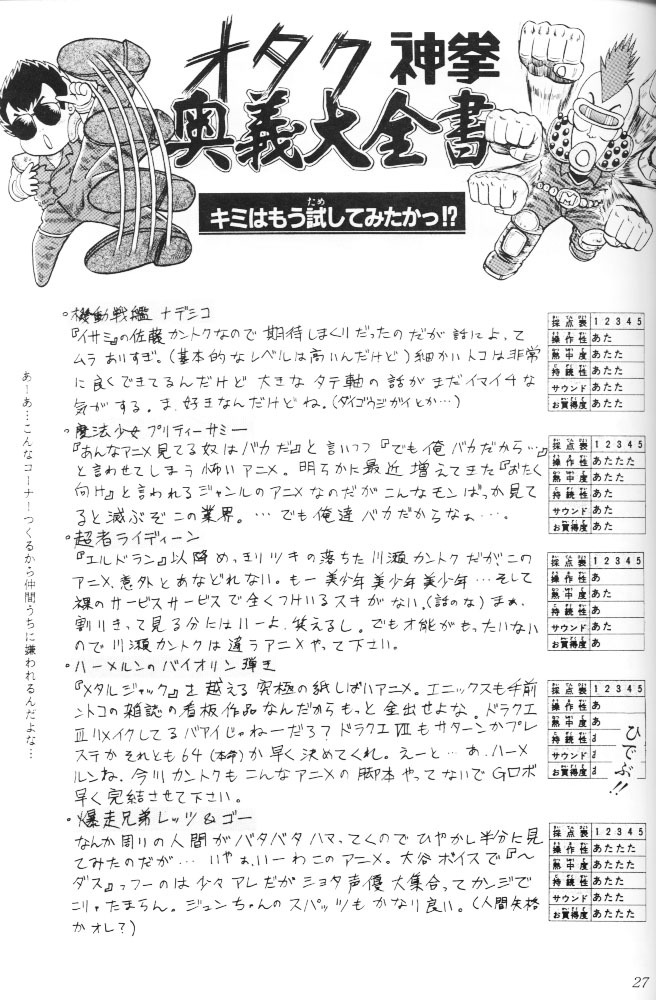 オタク神拳
奥義大全書
キミはもう試してみたかっ!?
ため
。機動戦艦ナデシコ
『イサミ』の佐藤カントクなので期待しまくりだったのだが話によって
ムラありすぎ。(基本的なレベルは高いんだけど)細かいトコは非常
に良くできてるんだけど大きなタテ軸の話がまだイマイチな
気がする。ま、好きなんだけどね。(ダイゴウジガイとか…)
採点表 1 2 3 4 5
操作性 あた
熱中度 あたた
持続性 あたた
サウンド あたた
お買得度 あたた
。魔法少女プリティーサミー
『あんなアニメ見てる奴はバカだ』と言いつつ『でも俺バカだから…』
と言わせてしまう怖いアニメ。明らかに最近増えてきた『おたく
向け』と言われるジャンルのアニメなのだがこんなモンばっか見て
ると滅ぶぞこの業界。…でも俺達バカだからなぁ…。
採点表 1 2 3 4 5
操作性 あたたた
熱中度 あたた
持続性 あた
サウンド あた
お買得度 あた
。超者ライディーン
『エルドラン』以降めっきりツキの落ちた川瀬カントクだが、この
アニメ、意外とあなどれない。もー美少年美少年美少年…そして
裸のサービスサービスで全くつけいるスキがない。(話のな)まぁ、
割りきって見る分にはいーよ、笑えるし。でも才能がもったいない
ので川瀬カントクは違うアニメやって下さい。
採点表 1 2 3 4 5
操作性 あ
熱中度 あた
持続性 あ
サウンド あた
お買得度 あ
。ハーメルンのバイオリン弾き
『メタルジャック』を越える究極の紙しばいアニメ。エニックスも手前
ントコの雑誌の看板作品なんだからもっと金出せよな。ドラクエ
Ⅲリメイクしてるバアイじゃねーだろ?ドラクエⅦもサターンかプレ
ステかそれとも64(本命)か早く決めてくれ。えーと…あ、ハーメ
ルンね、今川カントクもこんなアニメの脚本やってないでGロボ
早く完結させて下さい。
採点表 1 2 3 4 5
操作性 あ
熱中度 あ
持続性
サウンド
お買得度
ひでぶ!!
。爆走兄弟レッツ&ゴー
なんか周りの人間がバタバタハマってくのでひやかし半分に見
てみたのだが…いやぁ、いーわこのアニメ。大谷ボイスで『〜
ダス』っつーのは少々アレだがショタ声優大集合ってカンジで
こりゃたまらん。ジュンちゃんのスパッツもかなり良い。(人間失格
かオレ?)
採点表 1 2 3 4 5
操作性 あたたた
熱中度 あたたた
持続性 あたた
サウンド あたた
お買得度 あたたた
あーあ…こんなコーナーつくるから仲間うちに嫌われるんだよな…
27